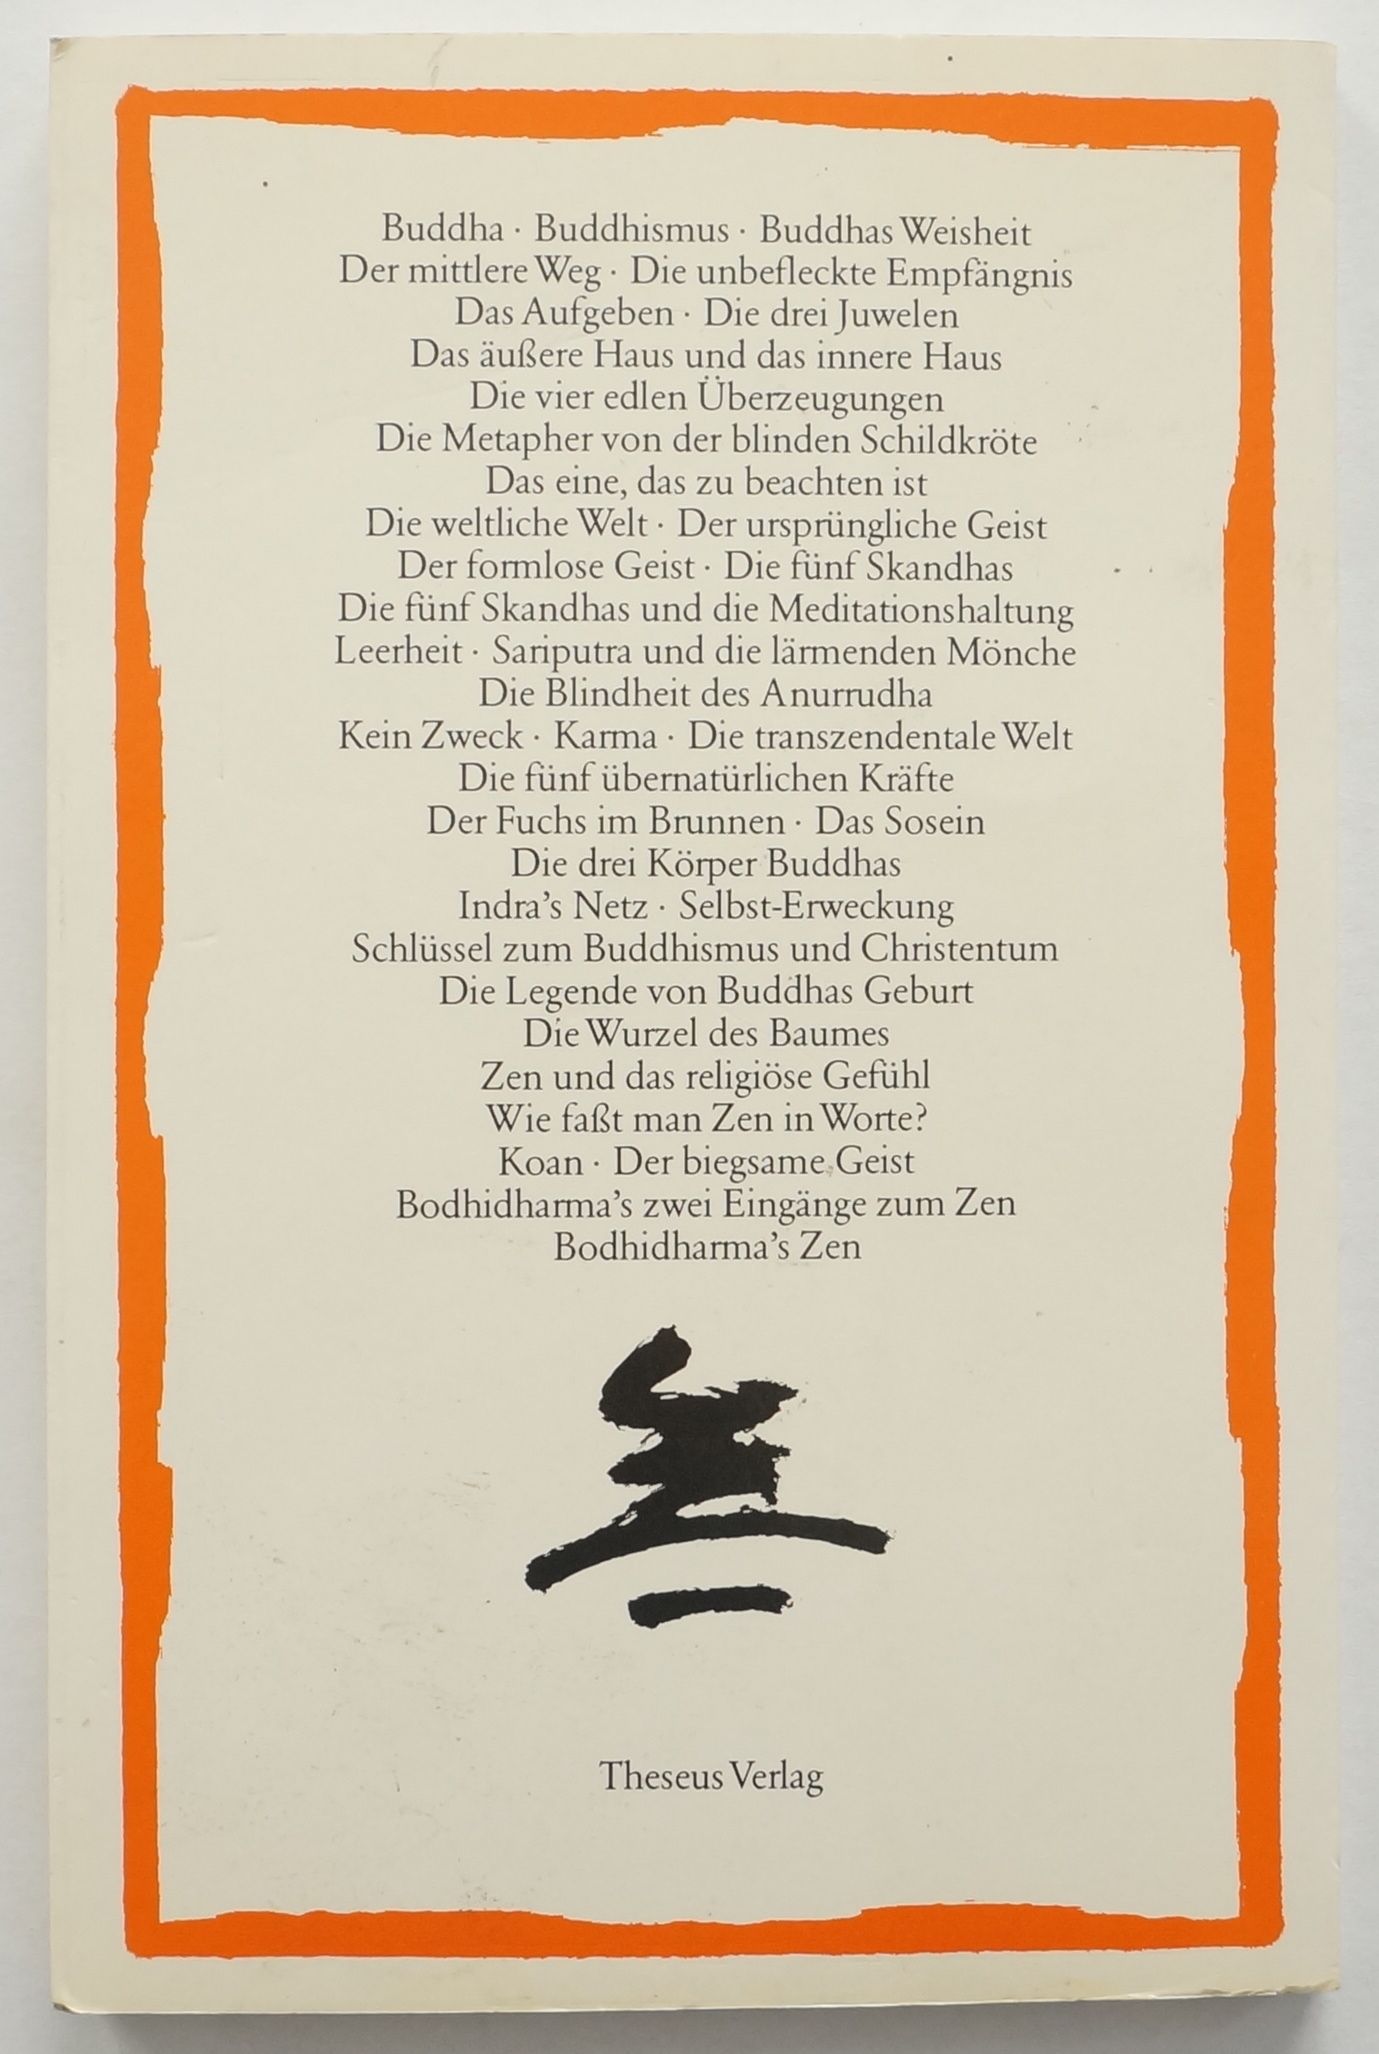 Buddha · Buddhismus · Buddhas Weisheit
Der mittlere Weg · Die unbefleckte Empfängnis
Das Aufgeben · Die drei Juwelen
Das äußere Haus und das innere Haus
Die vier edlen Überzeugungen
Die Metapher von der blinden Schildkröte
Das eine, das zu beachten ist
Die weltliche Welt · Der ursprüngliche Geist
Der formlose Geist · Die fünf Skandhas
Die fünf Skandhas und die Meditationshaltung
Leerheit · Sariputra und die lärmenden Mönche
Die Blindheit des Anurrudha
Kein Zweck · Karma · Die transzendentale Welt
Die fünf übernatürlichen Kräfte
Der Fuchs im Brunnen · Das Sosein
Die drei Körper Buddhas
Indra’s Netz · Selbst-Erweckung
Schlüssel zum Buddhismus und Christentum
Die Legende von Buddhas Geburt
Die Wurzel des Baumes
Zen und das religiöse Gefühl
Wie faßt man Zen in Worte?
Koan · Der biegsame Geist
Bodhidharma’s zwei Eingänge zum Zen
Bodhidharma’s Zen
Theseus Verlag